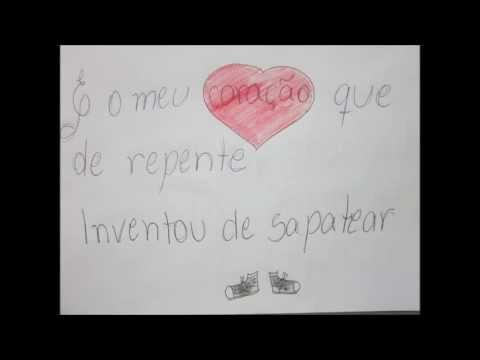 É o meu coração que
de repente
Inventou de sapatear